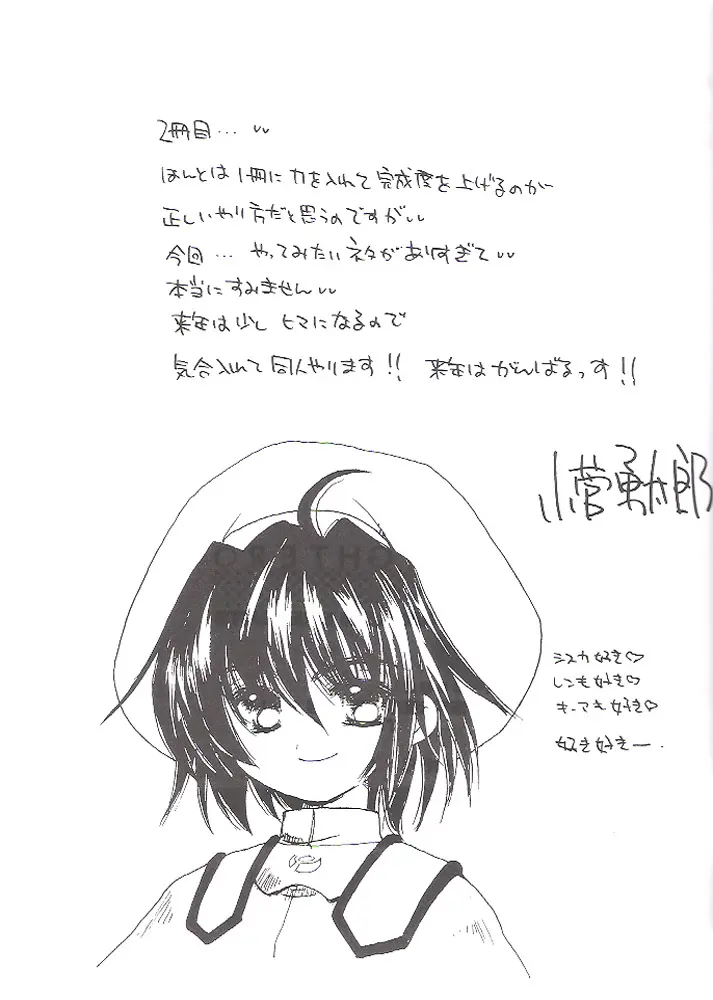 2冊目… 〃
ほんとは1冊に力を入れて完成度を上げるのがー
正しいやり方だと思うのですが〃
今回… やってみたいネタがありすぎて〃
本当にすみません〃
来年は少し ヒマになるので
気合入れて同人やります!! 来年はがんばるっす!!
小菅勇太郎
シスカ好き♡
レンも好き♡
キーアも好き♡
好き好きー.